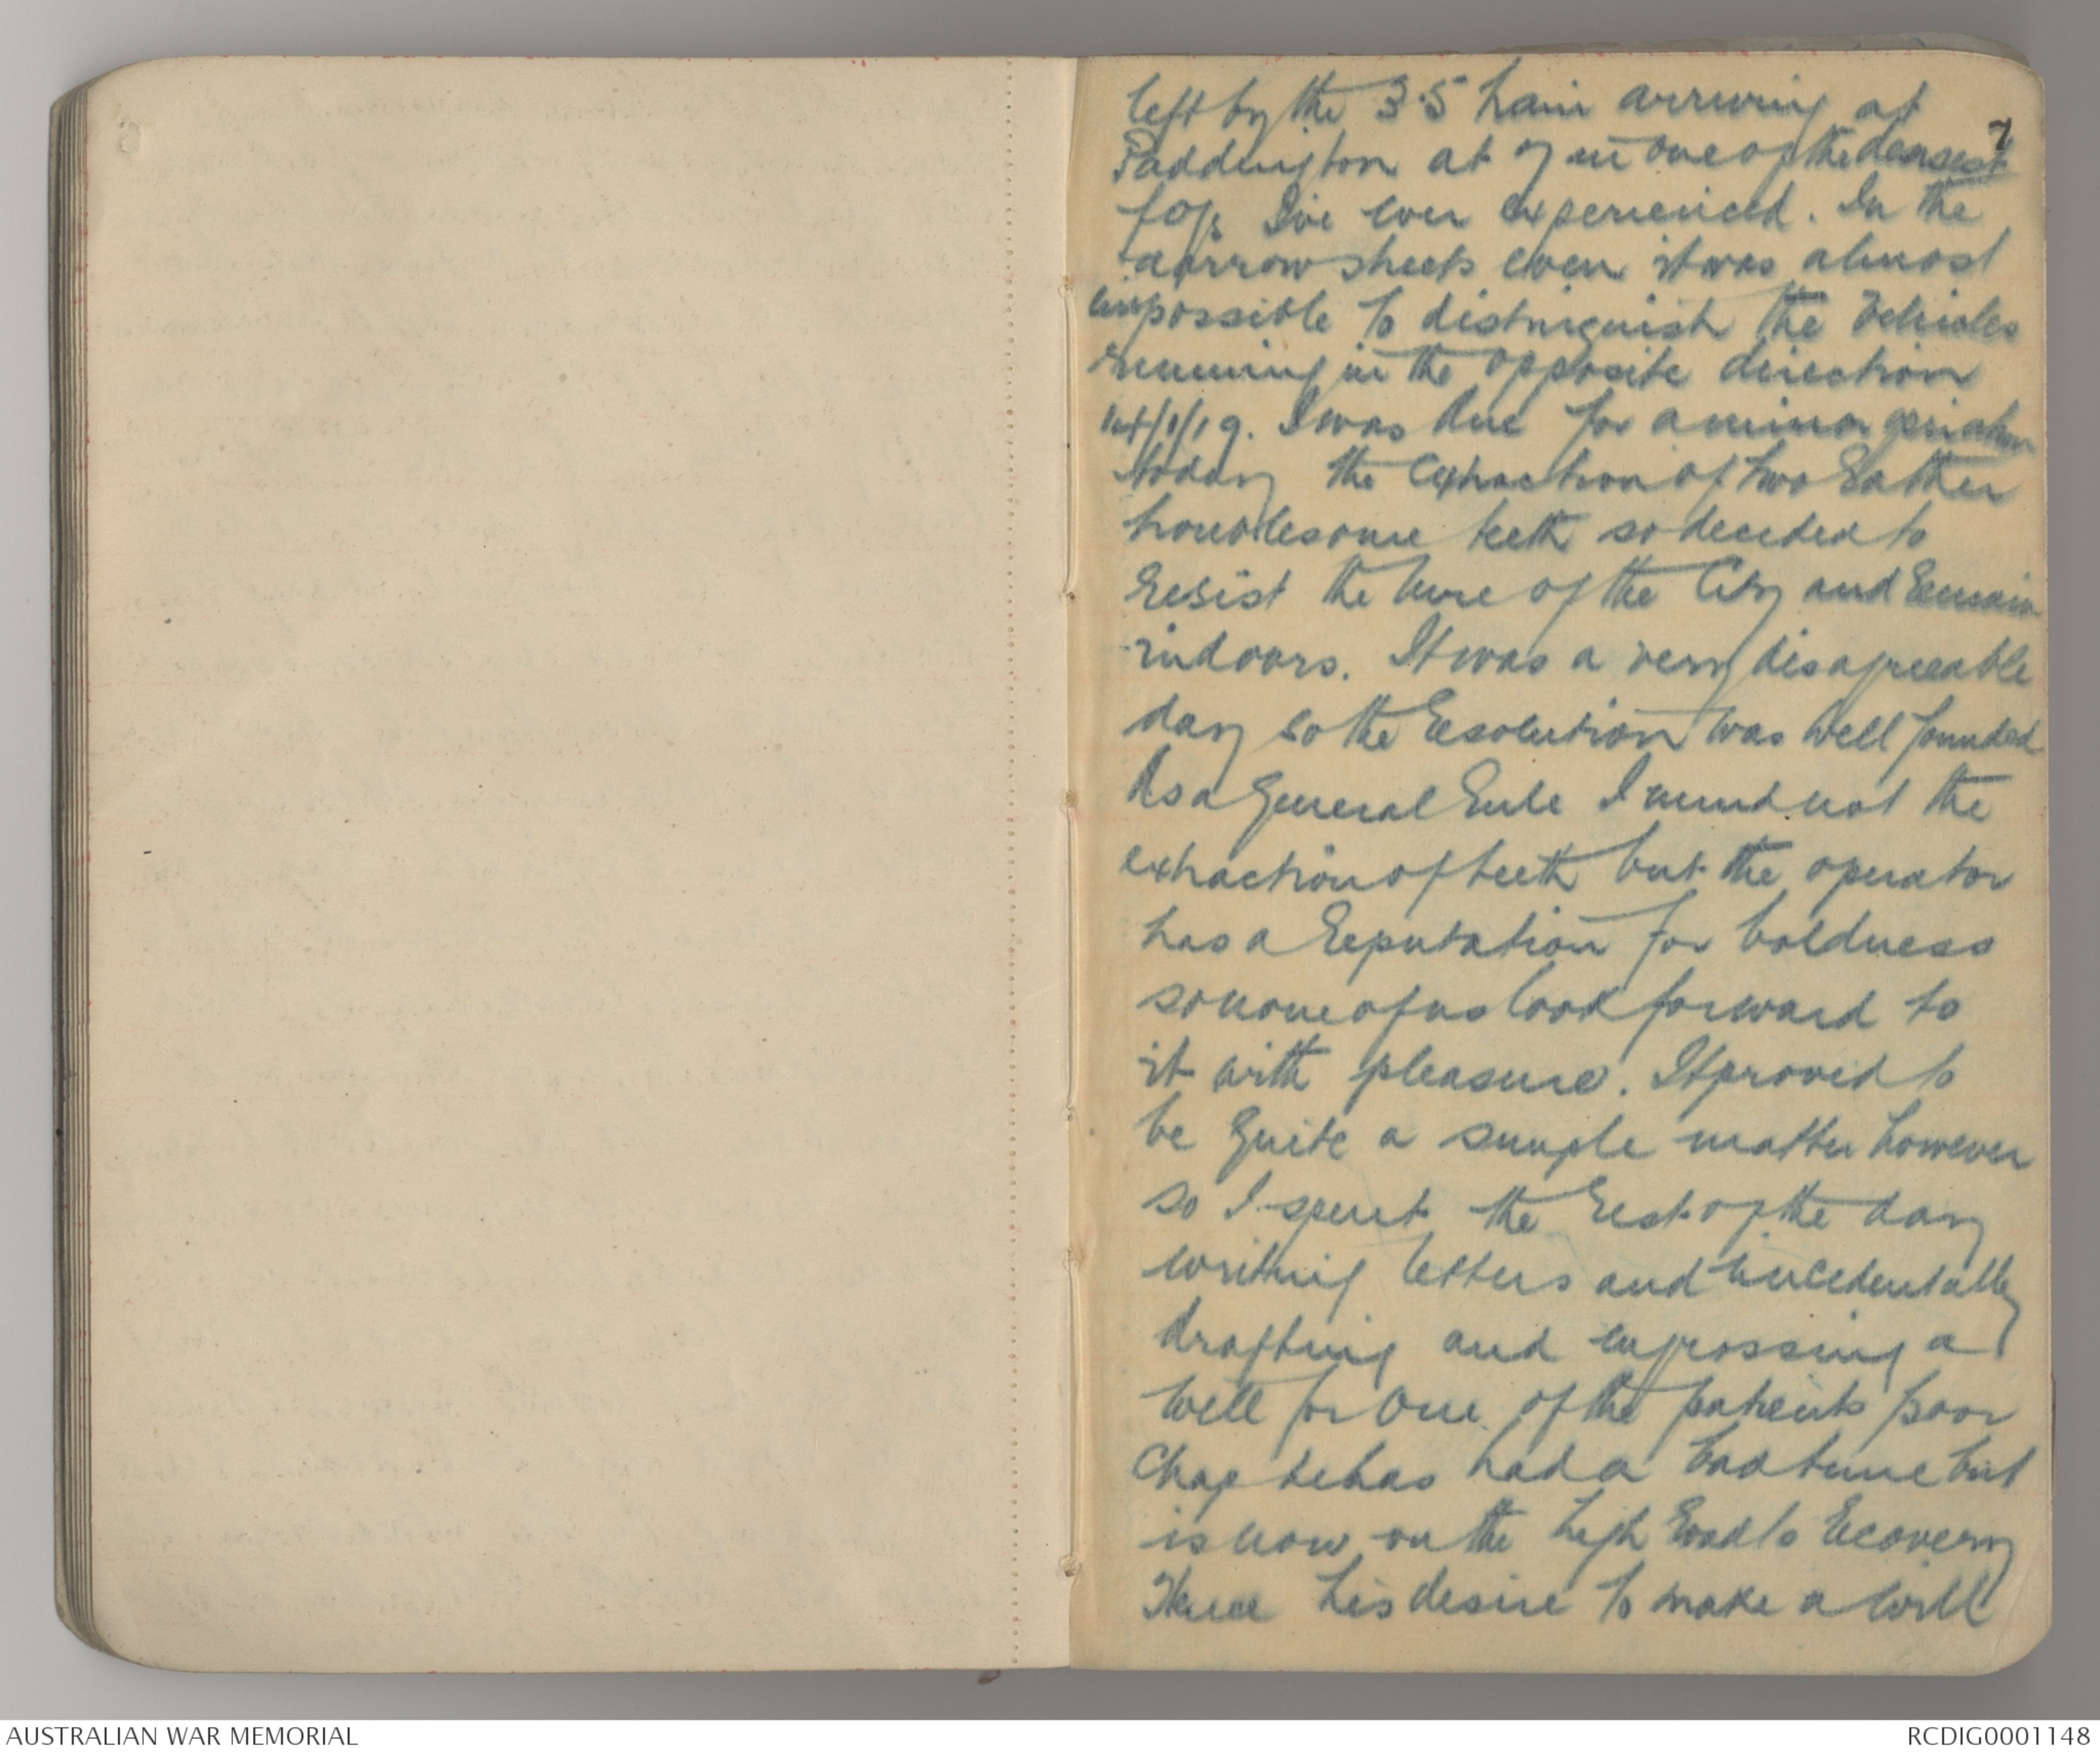 7
left by the 3.5 train arriving at
Paddington at 7 in one of the densest
fogs I've ever experienced. In the
narrow streets even it was almost
impossible to distinguish the vehicles
running in the opposite direction
14/1/19. I was due for a minor operation
today the extraction of two rather
troublesome teeth so decided to
resist the lure of the City and remain
indoors. It was a very disagreeable
day so the resolution was well founded
As a general rule I mind not the
extraction of teeth but the operator
has a reputation for boldness
so none of us look forward to
it with pleasure. It proved to
be quite a simple matter however
so I spent the rest of the day
writing letters and incidentally
drafting and engrossing a
will for one of the patients poor
chap he has had a bad time but
is now on the high road to recovery
Hence his desire to make a will
AUSTRALIAN WAR MEMORIAL
RCDIG0001148